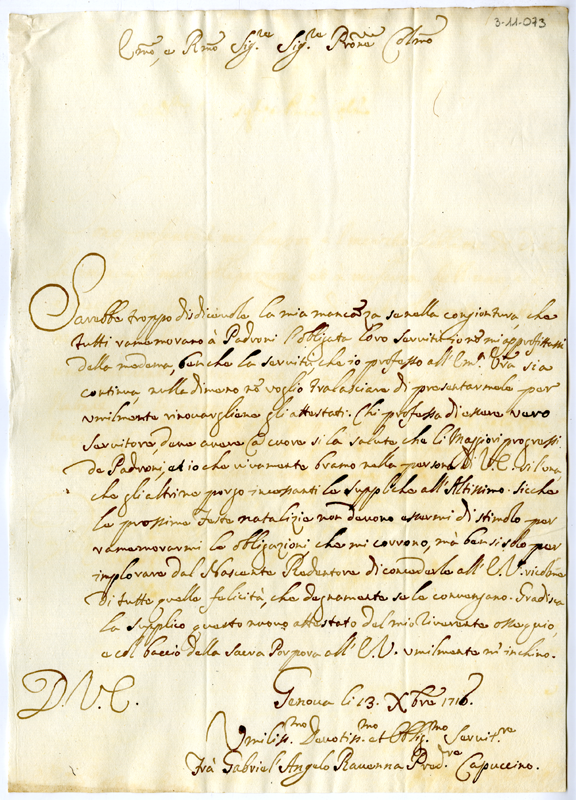 3-11-073
Emo, e Rmo Sig.re Sig.re Prone Colmo
Sarebbe troppo disdicevole la mia mancanza se nella congiontura, che
tutti ramemorano à Padroni l'obligata loro servitù io nõ mi approfittassi
della medema, benche la servitù, che io professo all'Em.a Vra sia
continua, nulla di meno nõ voglio tralasciare di presentarmele per
umilmente rinovargliene gli attestati. Chi professa di essere vero
servitore, deve avere à cuore si la salute che li Maggiori progressi
de Padroni, et io che vivamente bramo nella persona di V.E. si l'una,
che gli altri ne porgo incessanti le suppliche all'Altissimo. Sicche
le prossime feste natalizie non devono essermi di stimolo per
ramemorarmi le obligazioni che mi corrono, mà bensi solo per
implorare dal Nascente Redentore di concederle all'E.V.
di tutte quelle felicità, che degnamente se le convengano. Gradisca
la supplico questo nuovo attestato del mio riverente ossequio,
e col baccio della Sacra Porpora all'E.V. umilmente m'inchino.
D.V.E.
Genova li 13. Xbre 1716.
Umiliss.mo Devotiss.mo et Oblig.mo Servit.re
Frà Gabriel'Angelo Ravenna Pred.re Capuccino.